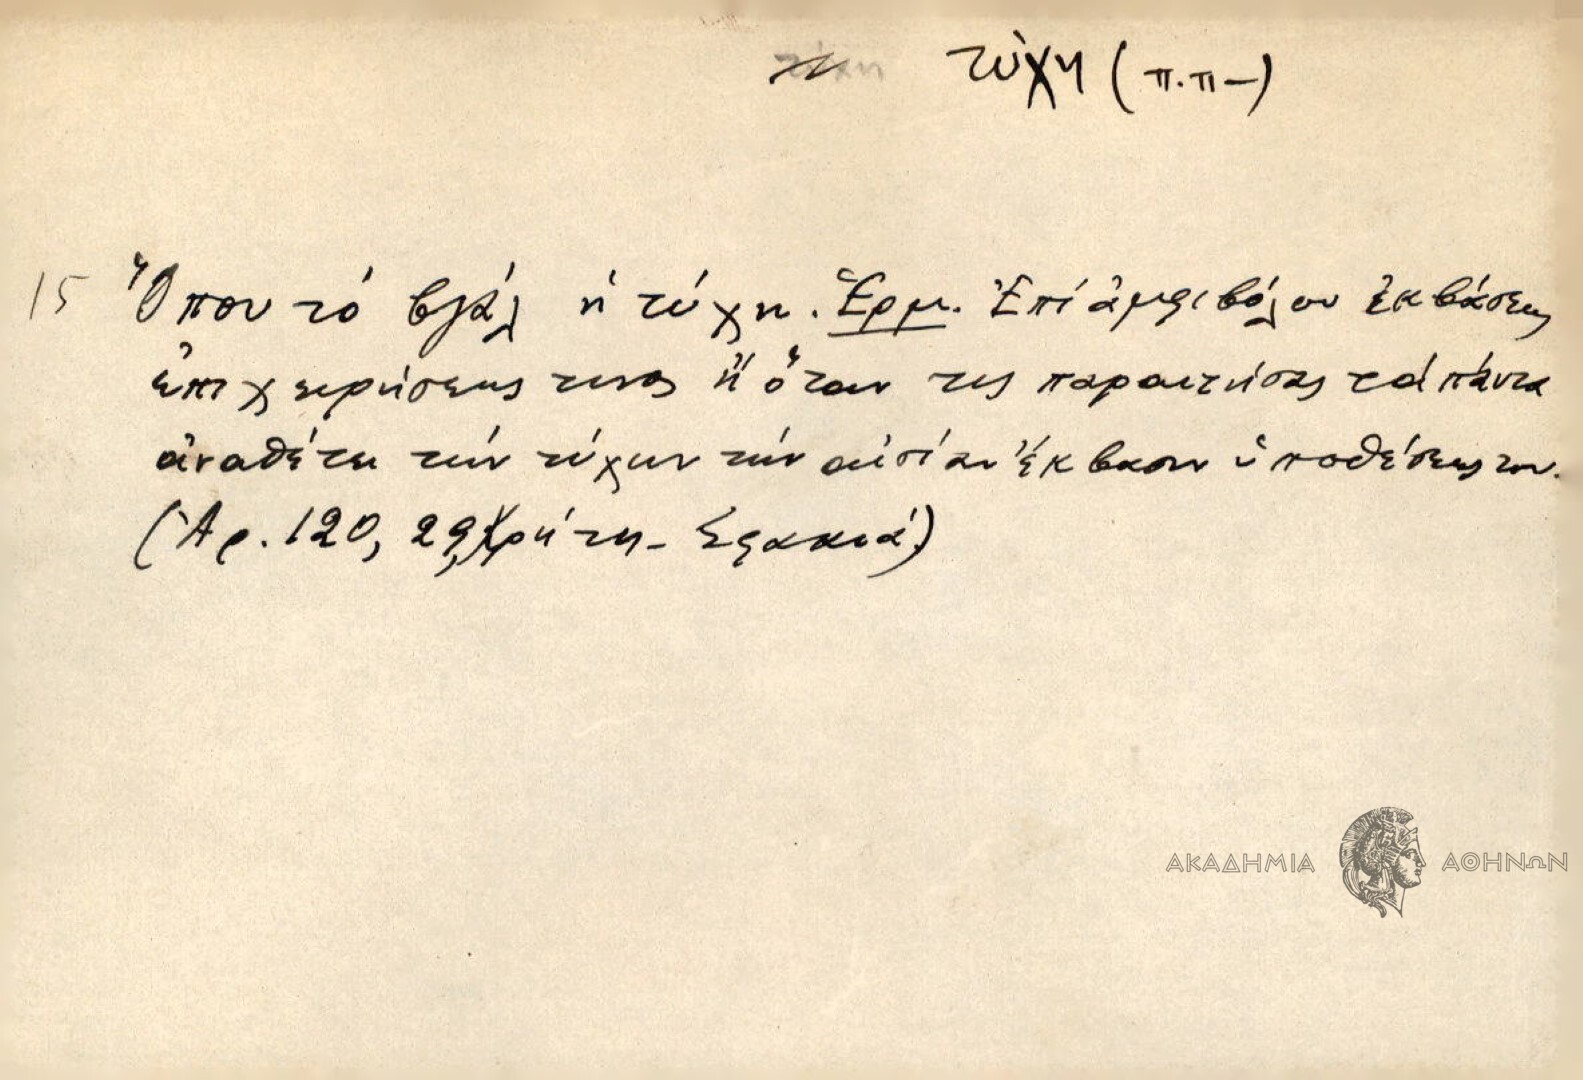 τύχη (π.π-)
15 Ὅπου τό βγάλ ἡ τύχη. Ἑρμ. Ἐπί ἀμφιβόλου ἐκβάσεως
ἐπιχειρήσεως τινος ἤ ὅταν τις παραιτήσας τά πάντα
ἀναθέτει τήν τύχην τήν αἰσίαν ἔκβασιν ὑποθέσεως του.
(Ἀρ. 120, 29, Κρήτη - Σφακιά)
ΑΚΑΔΗΜΙΑ ΑΘΗΝΩΝ